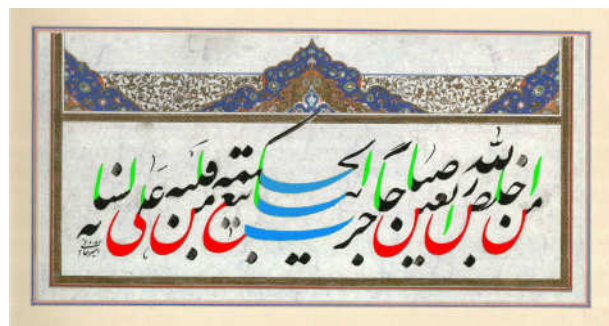 من اخلص لله اربعین صباحاً جرت ینابیع الحکمة من قلبه علی لسانه